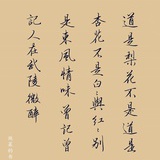 道是梨花不是道是
杏花不是白=與紅=別
是東風情味曾記曾
記人在武陵微醉